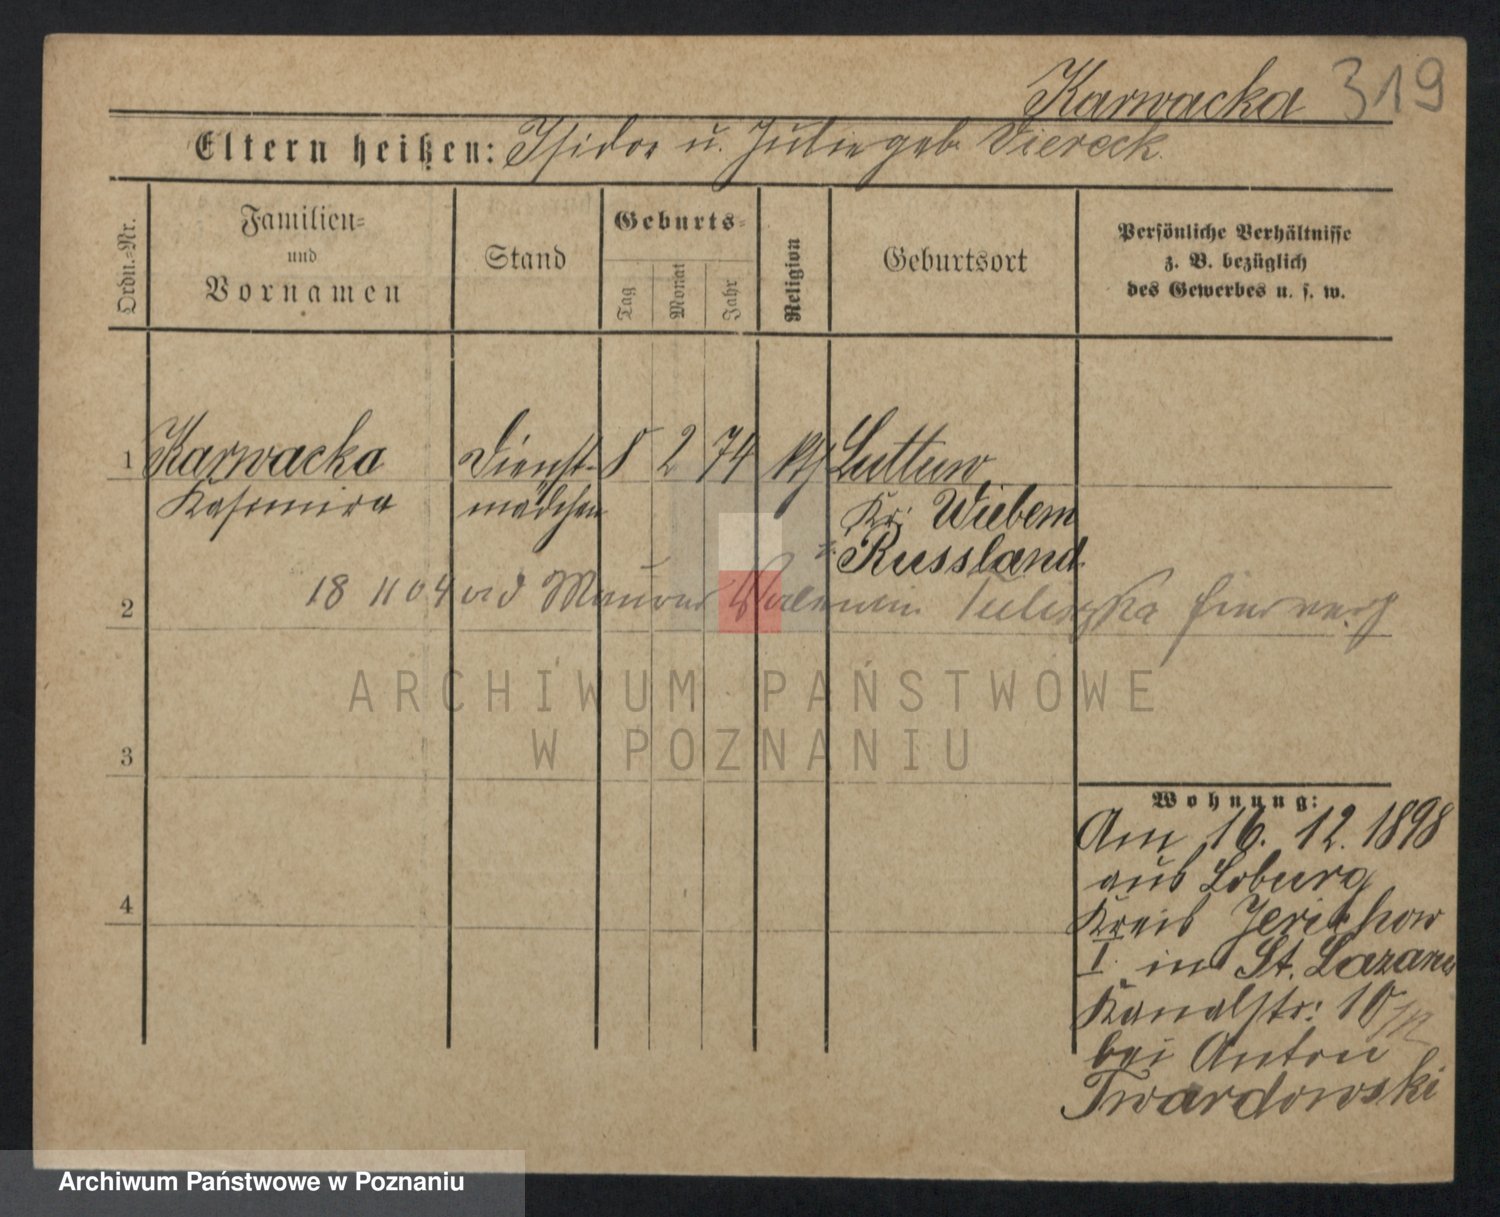 Karwacka 319
Eltern heißen: Isidor u. Julie geb. Viereck.
Ordn.-Nr.
Familien-
und
Vornamen
Stand
Geburts-
Tag
Monat
Jahr
Religion
Geburtsort
Persönliche Verhältnisse
z. B. bezüglich
des Gewerbes u. s. w.
1 Karwacka Dienst- 8 2 74 kth Luttuw
Kasimira mädchen Kr: Wiebem
Russland
18 11 04 Maurer Valentin hier verh
2
3
4
ARCHIWUM PAŃSTWOWE
W POZNANIU
Wohnung:
Am 16. 12. 1898
aus Loburg
Kreis Jerichow
I in St. Lazarus
Kanalstr: 10
bei Anton
Twardowski
Archiwum Państwowe w Poznaniu